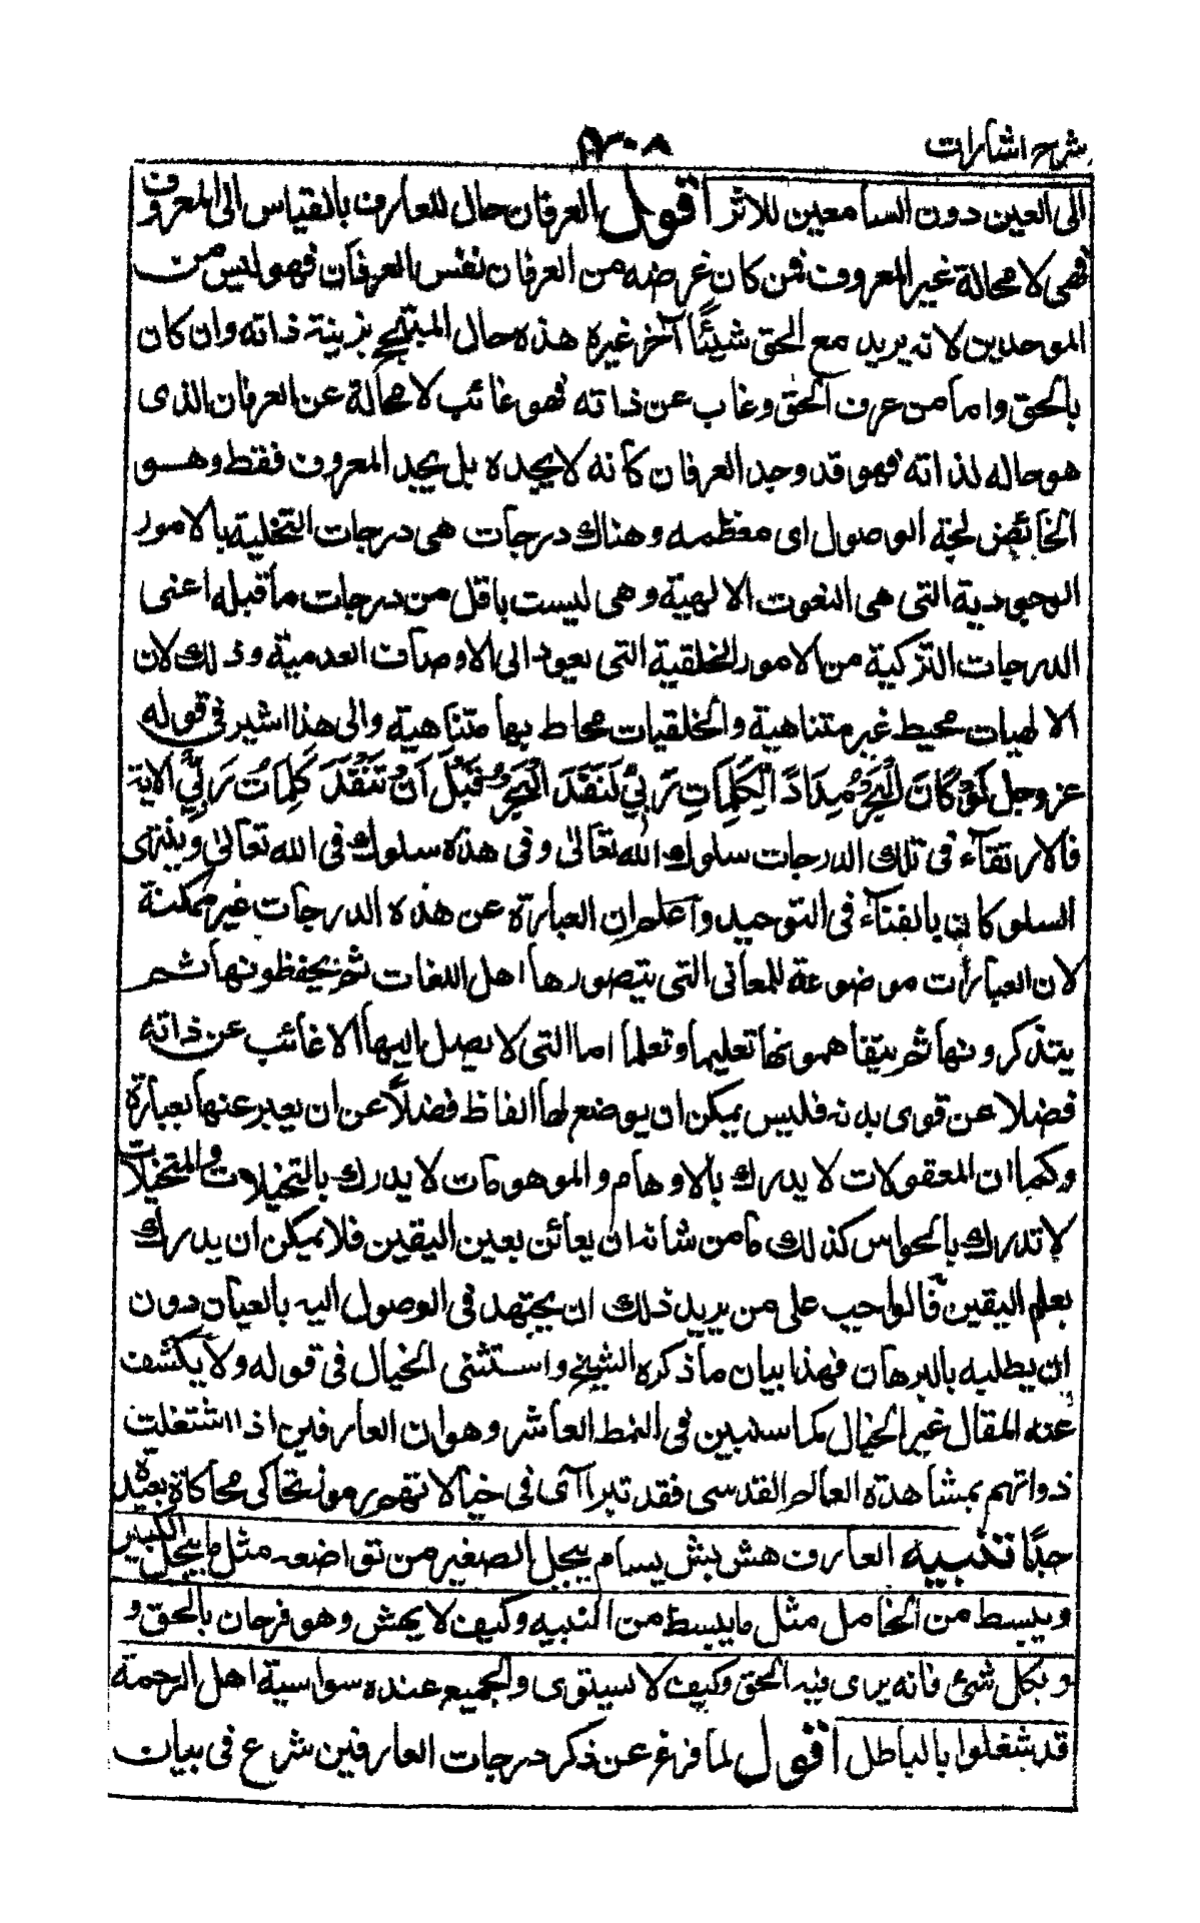 شرح اشارات ٣٠٨
الى العين دون السامعين للاثر اقول العرفان حال للعارف بالقياس الى المعروف
فهى لا محالة غير المعروف فمن كان غرضه من العرفان نفس العرفان فهو ليس من
الموحدين لانه يريد مع الحق شيئًا آخر غيره هذه حال المبتهج بزينة ذاته وان كان
بالحق واما من عرف الحق وغاب عن ذاته فهو غائب لا محالة عن العرفان الذى
هو حاله لذاته فهو قد وجد العرفان كانه لا يجده بل يجد المعروف فقط وهو
الخائض لجة الوصول اى معظمه وهناك درجات هى درجات التحلية بالامور
الوجودية التى هى النعوت الالهية وهى ليست باقل من درجات ما قبله اعنى
الدرجات التزكية من الامور الخلقية التى يعود الى الاوصاف العدمية وذلك لان
الالهيات محيط غير متناهية والخلقيات محاط بها متناهية والى هذا اشير فى قوله
عز وجل لَوْ كَانَ الْبَحْرُ مِدَادًا لِكَلِمَاتِ رَبِّي لَنَفِدَ الْبَحْرُ قَبْلَ اَنْ تَنْفَدَ كَلِمَاتُ رَبِّي الاية
فالارتقاء فى تلك الدرجات سلوك الله تعالى وفى هذه سلوك فى الله تعالى وينتهى
السلوكان بالفناء فى التوحيد واعلم ان العبارة عن هذه الدرجات غير ممكنة
لان العبارات موضوعة للمعانى التى يتصورها اهل اللغات ثم يحفظونها ثم
يتذكرونها ثم يتفاهمونها تعليما وتعلما اما التى لا يصل اليها الا غائب عن ذاته
فضلا عن قوى بدنه فليس يمكن ان يوضع لها الفاظ فضلًا عن ان يعبر عنها بعبارة
وكما ان المعقولات لا يدرك بالاوهام والموهومات لا يدرك بالتخيلات والمتخيلات
لا تدرك بالحواس كذلك ما من شانه ان يعائن بعين اليقين فلا يمكن ان يدرك
بعلم اليقين فالواجب على من يريد ذلك ان يجتهد فى الوصول اليه بالعيان دون
ان يطلبه بالبرهان فهذا بيان ما ذكره الشيخ واستثنى الخيال فى قوله ولا يكشف
عنه المقال غير الخيال كما سنبين فى النمط العاشر وهو ان العارفين اذا اشتغلت
ذواتهم بمشاهدة العالم القدسى فقد تبرا آى فى خيالاتهم رموز تحاكى محاكاة بعيدة
جدًا تنبيه العارف هش بش بسام يبجل الصغير من تواضعه مثل ما يبجل الكبير
وينبسط من الخامل مثل ما ينبسط من النبيه وكيف لا يهش وهو فرحان بالحق و
وبكل شئ فانه يرى فيه الحق وكيف لا يستوى والجميع عنده سواسية اهل الرحمة
قد شغلوا بالباطل اقول لما فرغ عن ذكر درجات العارفين شرع فى بيان